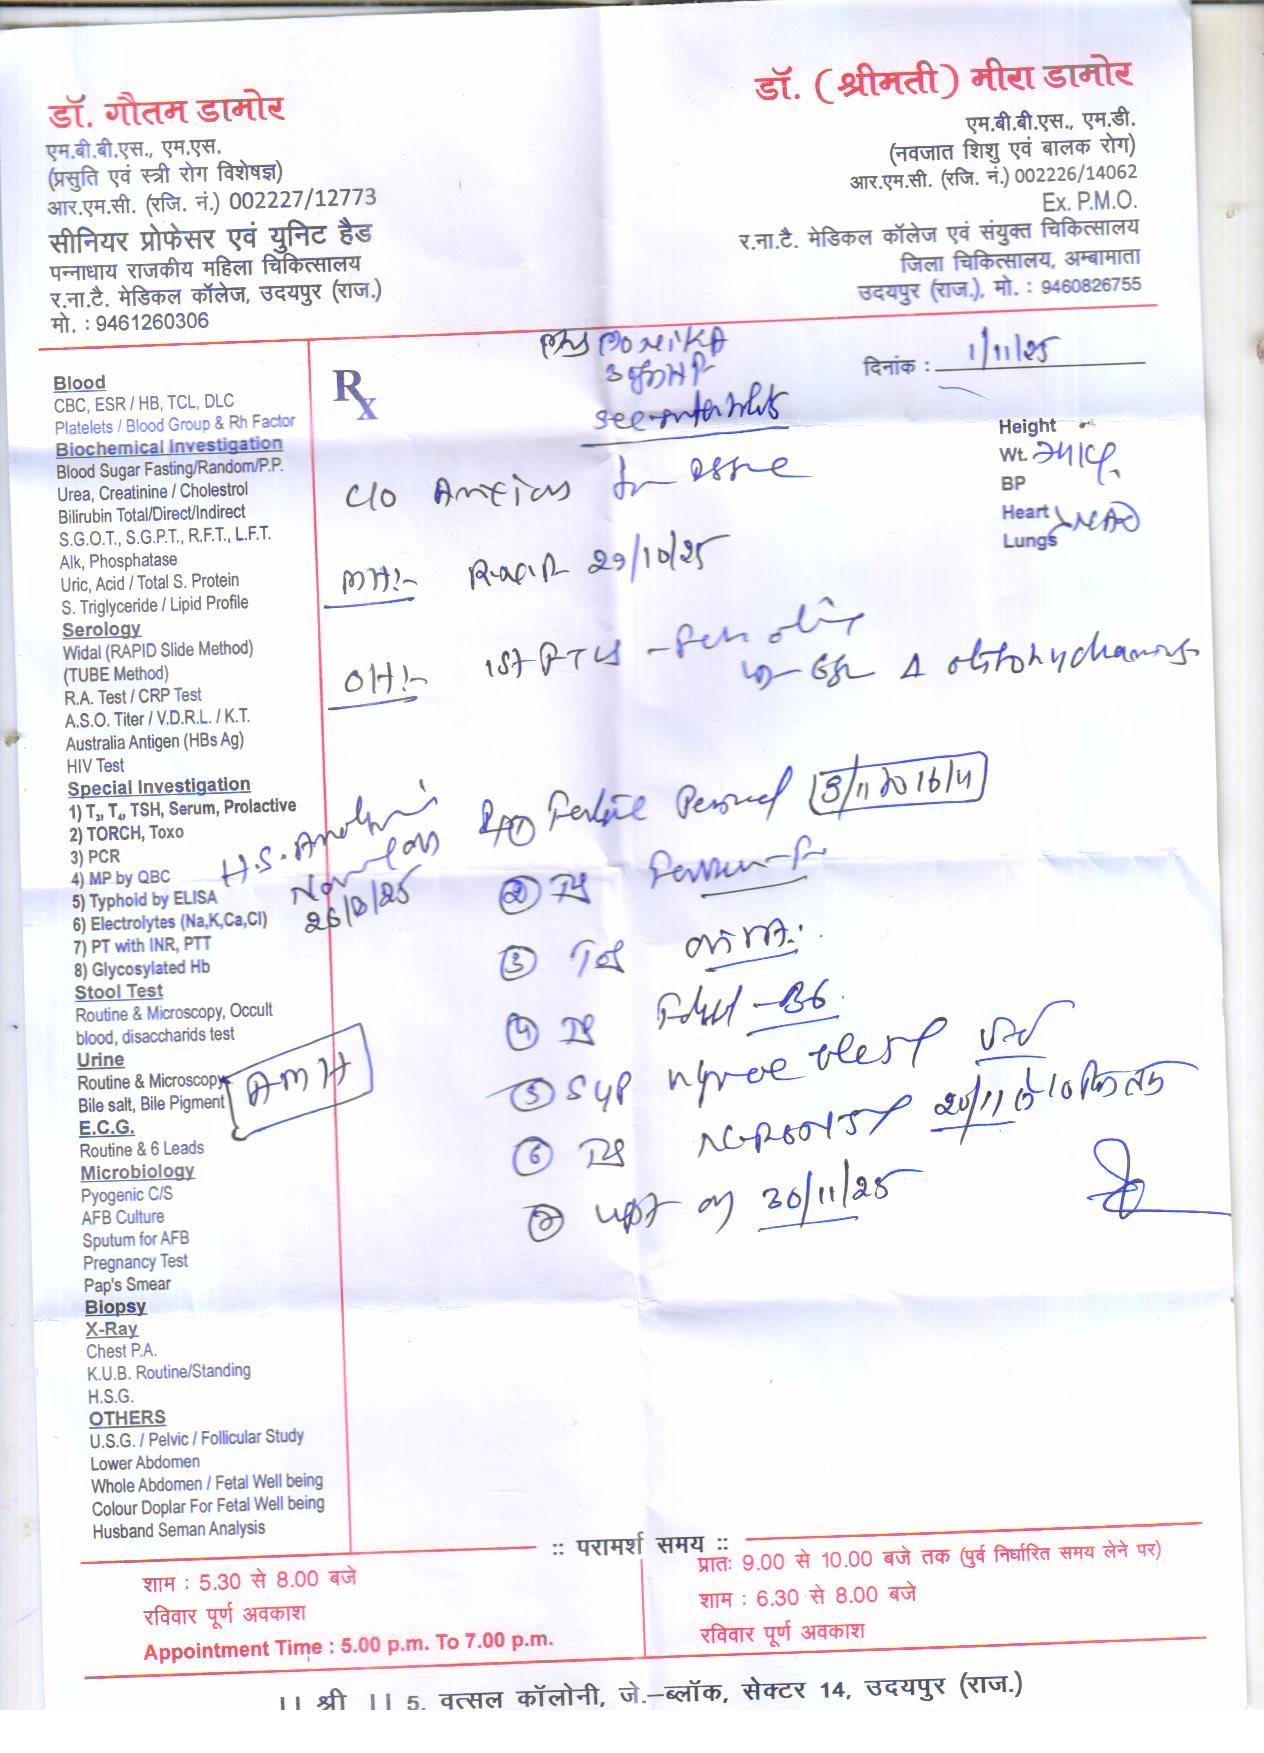 डॉ. गौतम डामोर
एम.बी.बी.एस., एम.एस.
(प्रसुति एवं स्त्री रोग विशेषज्ञ)
आर.एम.सी. (रजि. नं.) 002227/12773
सीनियर प्रोफेसर एवं युनिट हैड
पन्नाधाय राजकीय महिला चिकित्सालय
र.ना.टै. मेडिकल कॉलेज, उदयपुर (राज.)
मो. : 9461260306
डॉ. (श्रीमती) मीरा डामोर
एम.बी.बी.एस., एम.डी.
(नवजात शिशु एवं बालक रोग)
आर.एम.सी. (रजि. नं.) 002226/14062
Ex. P.M.O.
र.ना.टै. मेडिकल कॉलेज एवं संयुक्त चिकित्सालय
जिला चिकित्सालय, अम्बामाता
उदयपुर (राज.), मो. : 9460826755
दिनांक : 1/11/25
Height
Wt.
BP
Heart
Lungs
Blood
CBC, ESR / HB, TCL, DLC
Platelets / Blood Group & Rh Factor
Biochemical Investigation
Blood Sugar Fasting/Random/P.P.
Urea, Creatinine / Cholestrol
Bilirubin Total/Direct/Indirect
S.G.O.T., S.G.P.T., R.F.T., L.F.T.
Alk, Phosphatase
Uric, Acid / Total S. Protein
S. Triglyceride / Lipid Profile
Serology
Widal (RAPID Slide Method)
(TUBE Method)
R.A. Test / CRP Test
A.S.O. Titer / V.D.R.L. / K.T.
Australia Antigen (HBs Ag)
HIV Test
Special Investigation
1) T3, T4, TSH, Serum, Prolactive
2) TORCH, Toxo
3) PCR
4) MP by QBC
5) Typhoid by ELISA
6) Electrolytes (Na,K,Ca,Cl)
7) PT with INR, PTT
8) Glycosylated Hb
Stool Test
Routine & Microscopy, Occult
blood, disaccharids test
Urine
Routine & Microscopy
Bile salt, Bile Pigment
E.C.G.
Routine & 6 Leads
Microbiology
Pyogenic C/S
AFB Culture
Sputum for AFB
Pregnancy Test
Pap's Smear
Biopsy
X-Ray
Chest P.A.
K.U.B. Routine/Standing
H.S.G.
OTHERS
U.S.G. / Pelvic / Follicular Study
Lower Abdomen
Whole Abdomen / Fetal Well being
Colour Doplar For Fetal Well being
Husband Seman Analysis
Rx
C/O Anxious for issue
MH:- 29/10/25
OH:- 1st
H.S.
AMH
① Fertile Period 3/11 to 16/11
②
③
④
⑤ Syp
⑥ 20/11 से 10 दिन तक
⑦ UPT on 30/11/25
:: परामर्श समय ::
शाम : 5.30 से 8.00 बजे
रविवार पूर्ण अवकाश
Appointment Time : 5.00 p.m. To 7.00 p.m.
प्रातः 9.00 से 10.00 बजे तक (पुर्व निर्धारित समय लेने पर)
शाम : 6.30 से 8.00 बजे
रविवार पूर्ण अवकाश
|| श्री || 5, वत्सल कॉलोनी, जे.-ब्लॉक, सेक्टर 14, उदयपुर (राज.)